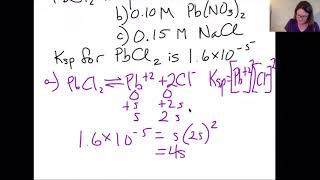 b) 0.10 M Pb(NO₃)₂
c) 0.15 M NaCl
Ksp for PbCl₂ is 1.6×10⁻⁵
a) PbCl₂ ⇌ Pb⁺² + 2Cl⁻ Ksp=[Pb⁺²][Cl⁻]²
0 0
+s +2s
s 2s
1.6×10⁻⁵ = s(2s)²
=4s